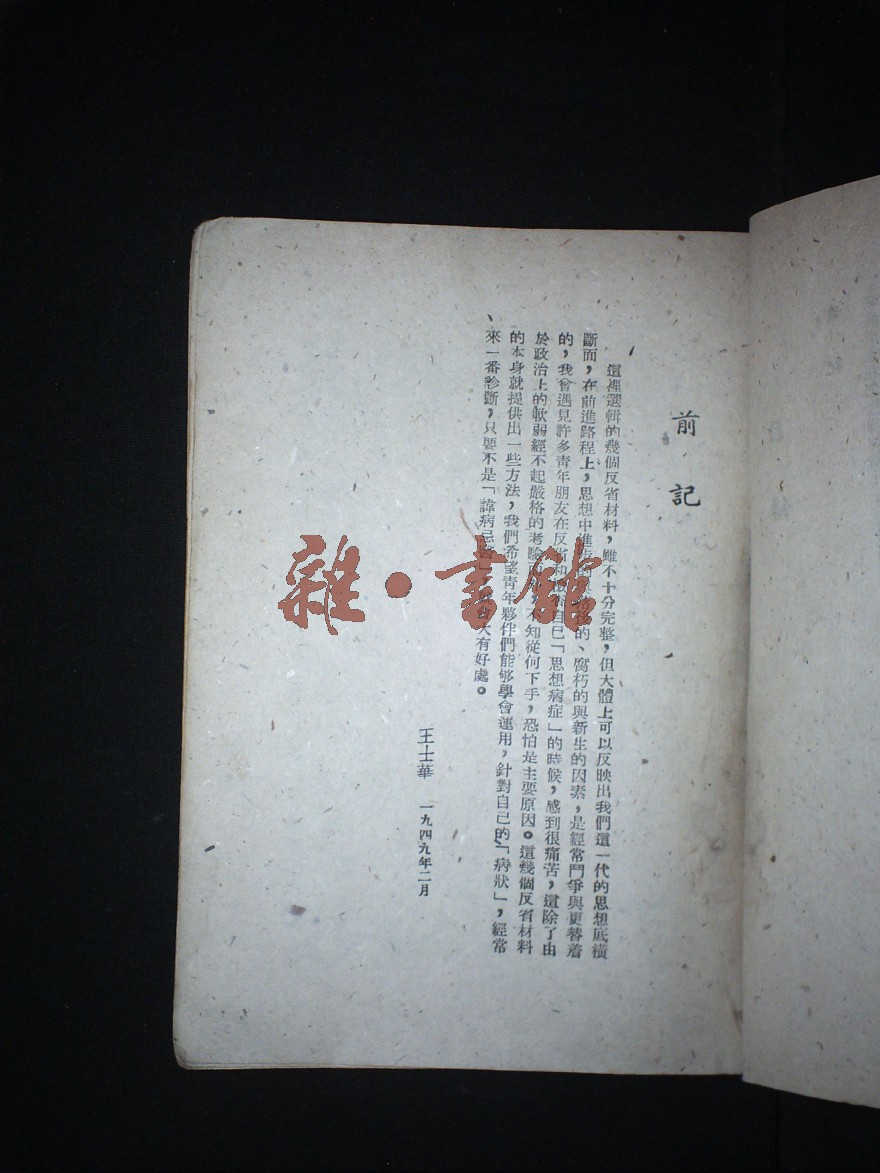 前記
這裡選輯的幾個反省材料，雖不十分完整，但大體上可以反映出我們這一代的思想底橫
斷面，在前進路程上，思想中進步的與的、腐朽的與新生的因素，是經常鬥爭與更替着
的，我會遇見許多青年朋友在反省和自己「思想病症」的時候，感到很痛苦，這除了由
於政治上的軟弱經不起嚴格的考驗而外，不知從何下手，恐怕是主要原因。這幾個反省材料
的本身就提供出一些方法，我們希望青年夥伴們能够學會運用，針對自己的「病狀」，經常
來一番診斷，只要不是「諱病忌醫」，大有好處。
王士華 一九四九年二月
雜·書館